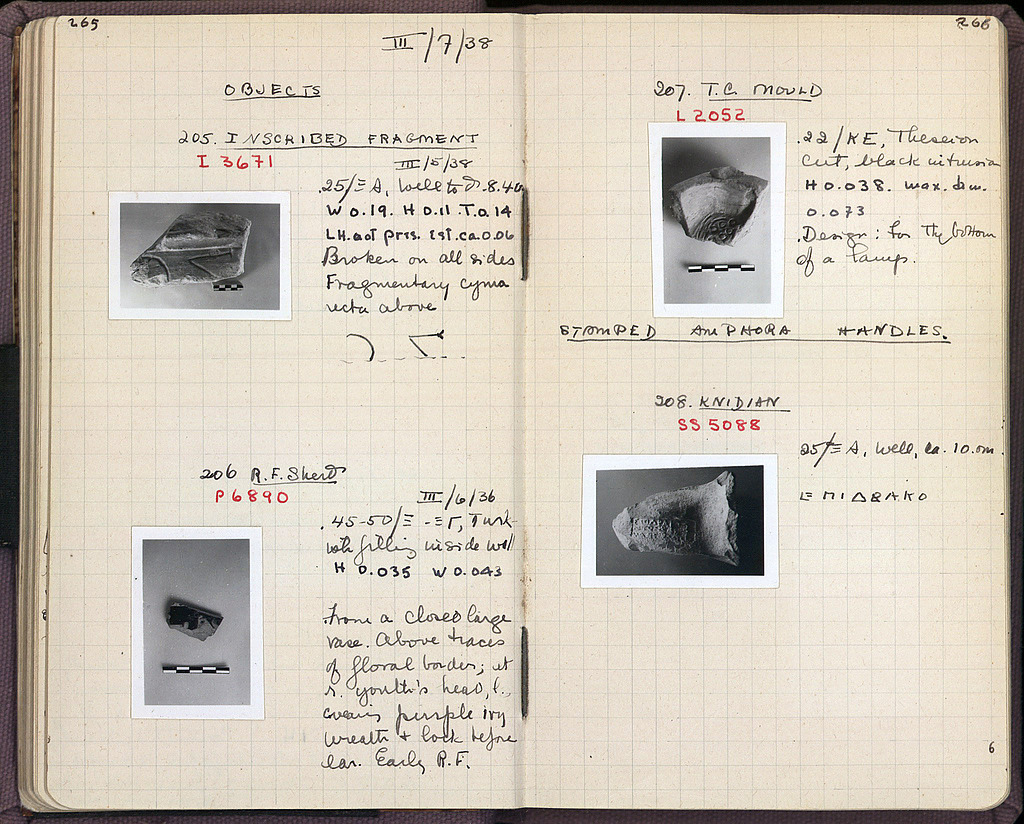 265
III/7/38
OBJECTS
205. INSCRIBED FRAGMENT
I 3671
III/5/38
.25/Ξ A, Well to d. 8.40
W 0.19. H 0.11. T. 0.14
L.H. not pres. est. ca. 0.06
Broken on all sides
Fragmentary cyma
recta above
206 R.F. Sherd
P 6890
III/6/36
.45-50/Ξ - Ξ Γ, Turk-
ish filling inside wall
H 0.035 W 0.043
From a closed large
vase. Above traces
of floral border; at
r. youth's head, l.,
purple ivy
wreath + lock before
ear. Early R.F.
266
207. T.C. MOULD
L 2052
.22/KE, Theseion
Cut, black intrusion
H 0.038. max. dim.
0.073
.Design: for the bottom
of a lamp.
STAMPED AMPHORA HANDLES.
208. KNIDIAN
SS 5088
25/Ξ A, Well, ca. 10.0m.
6